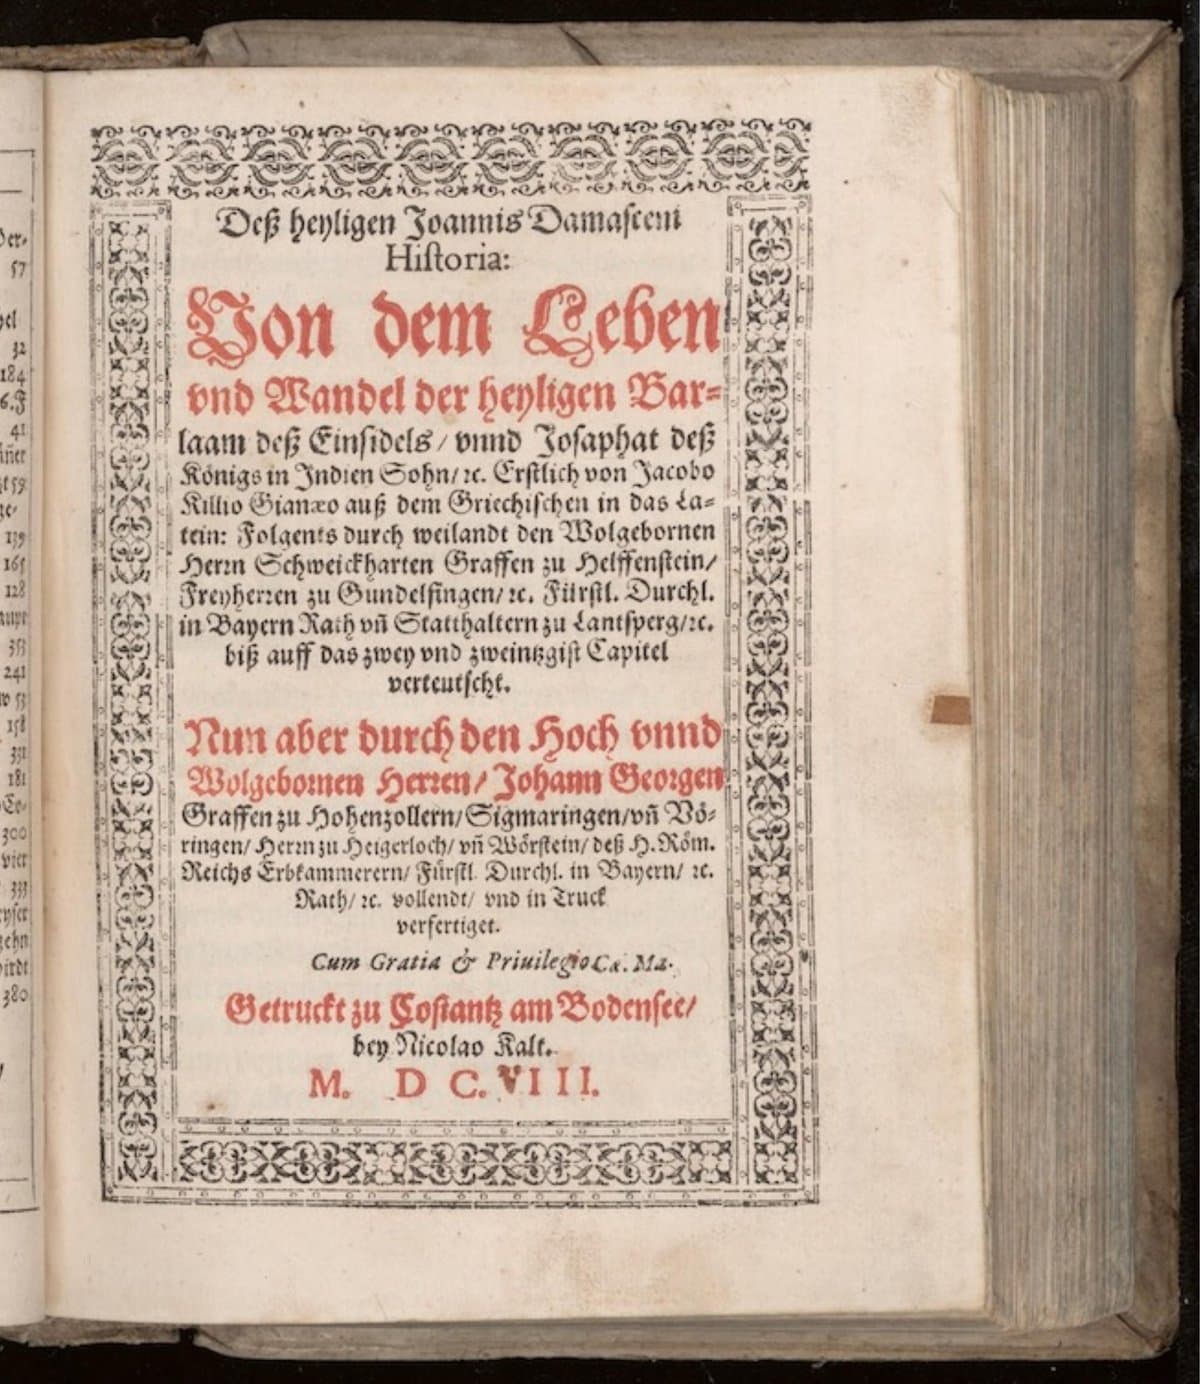 Der-
57
32
184
6.F
41
159
ze-
139
165
128
353
241
53
158
331
181
300
vier
333
zehn
wirdt
380
Deß heyligen Joannis Damasceni
Historia:
Von dem Leben
vnd Wandel der heyligen Bar-
laam deß Einsidels/ vnnd Josaphat deß
Königs in Jndien Sohn/ ꝛc. Erstlich von Jacobo
Killio Gianæo auß dem Griechischen in das La-
tein: Folgents durch weilandt den Wolgebornen
Herrn Schweickharten Graffen zu Helffenstein/
Freyherren zu Gundelfingen/ ꝛc. Fürstl. Durchl.
in Bayern Rath vñ Statthaltern zu Lantsperg/ꝛc.
biß auff das zwey vnd zweintzgist Capitel
verteutscht.
Nun aber durch den Hoch vnnd
Wolgebornen Herren/ Johann Georgen
Graffen zu Hohenzollern/ Sigmaringen/ vñ Vö-
ringen/ Herrn zu Heigerloch/ vñ Wörstein/ deß H. Röm.
Reichs Erbkammerern/ Fürstl. Durchl. in Bayern/ ꝛc.
Rath/ ꝛc. vollendt/ vnd in Truck
verfertiget.
Cum Gratia & Priuilegio Cæ. Ma.
Getruckt zu Costantz am Bodensee/
bey Nicolao Kalt.
M. D C. VIII.